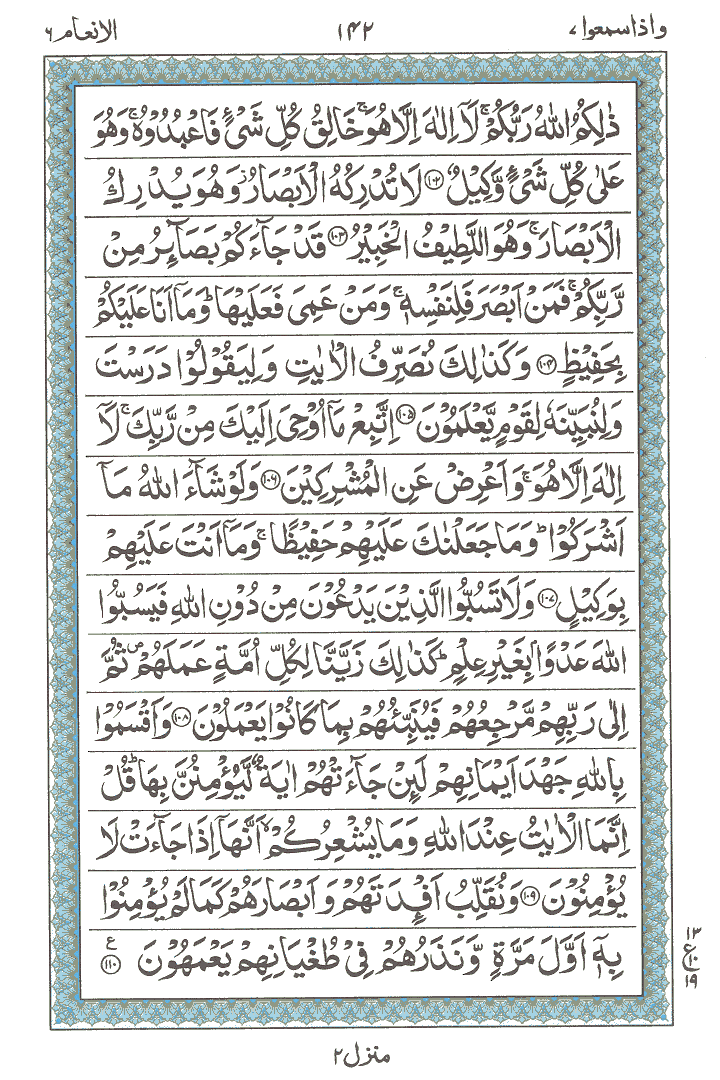 واذاسمعوا ٧ ١٤٢ الانعام ٦
ذٰلِكُمُ اللّٰهُ رَبُّكُمْ ۚ لَاۤ اِلٰهَ اِلَّا هُوَ ۚ خَالِقُ كُلِّ شَیْءٍ فَاعْبُدُوْهُ ۚ وَهُوَ
عَلٰی كُلِّ شَیْءٍ وَّكِیْلٌ ﴿۱۰۲﴾ لَا تُدْرِكُهُ الْاَبْصَارُ ؗ وَهُوَ یُدْرِكُ
الْاَبْصَارَ ۚ وَهُوَ اللَّطِیْفُ الْخَبِیْرُ ﴿۱۰۳﴾ قَدْ جَآءَكُمْ بَصَآىِٕرُ مِنْ
رَّبِّكُمْ ۚ فَمَنْ اَبْصَرَ فَلِنَفْسِهٖ ۚ وَمَنْ عَمِیَ فَعَلَیْهَا ؕ وَمَاۤ اَنَا عَلَیْكُمْ
بِحَفِیْظٍ ﴿۱۰۴﴾ وَكَذٰلِكَ نُصَرِّفُ الْاٰیٰتِ وَلِیَقُوْلُوْا دَرَسْتَ
وَلِنُبَیِّنَهٗ لِقَوْمٍ یَّعْلَمُوْنَ ﴿۱۰۵﴾ اِتَّبِعْ مَاۤ اُوْحِیَ اِلَیْكَ مِنْ رَّبِّكَ ۚ لَاۤ
اِلٰهَ اِلَّا هُوَ ۚ وَاَعْرِضْ عَنِ الْمُشْرِكِیْنَ ﴿۱۰۶﴾ وَلَوْ شَآءَ اللّٰهُ مَاۤ
اَشْرَكُوْا ؕ وَمَا جَعَلْنٰكَ عَلَیْهِمْ حَفِیْظًا ۚ وَمَاۤ اَنْتَ عَلَیْهِمْ
بِوَكِیْلٍ ﴿۱۰۷﴾ وَلَا تَسُبُّوا الَّذِیْنَ یَدْعُوْنَ مِنْ دُوْنِ اللّٰهِ فَیَسُبُّوا
اللّٰهَ عَدْوًۢا بِغَیْرِ عِلْمٍ ؕ كَذٰلِكَ زَیَّنَّا لِكُلِّ اُمَّةٍ عَمَلَهُمْ ۪ ثُمَّ
اِلٰی رَبِّهِمْ مَّرْجِعُهُمْ فَیُنَبِّئُهُمْ بِمَا كَانُوْا یَعْمَلُوْنَ ﴿۱۰۸﴾ وَاَقْسَمُوْا
بِاللّٰهِ جَهْدَ اَیْمَانِهِمْ لَىِٕنْ جَآءَتْهُمْ اٰیَةٌ لَّیُؤْمِنُنَّ بِهَا ؕ قُلْ
اِنَّمَا الْاٰیٰتُ عِنْدَ اللّٰهِ وَمَا یُشْعِرُكُمْ ۙ اَنَّهَاۤ اِذَا جَآءَتْ لَا
یُؤْمِنُوْنَ ﴿۱۰۹﴾ وَنُقَلِّبُ اَفْـِٕدَتَهُمْ وَاَبْصَارَهُمْ كَمَا لَمْ یُؤْمِنُوْا
بِهٖۤ اَوَّلَ مَرَّةٍ وَّنَذَرُهُمْ فِیْ طُغْیَانِهِمْ یَعْمَهُوْنَ ﴿۱۱۰﴾ ع
١٣
ع ١٠
١٩
منزل ٢